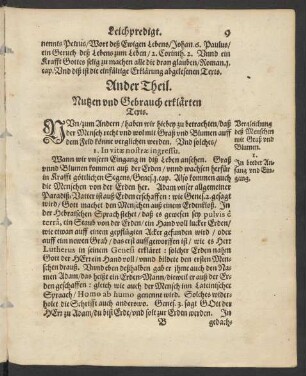 Leichpredigt. 9
nennts Petrus/ Wort deß Ewigen Lebens/ Johan. 6. Paulus/
ein Geruch deß Lebens zum Leben/ 2. Corinth. 2. Vnnd ein
Krafft Gottes selig zu machen alle die dran glauben/ Roman. 1.
cap. Vnd diß ist die einfältige Erklärung abgelesenen Texts.
Ander Theil.
Nutzen vnd Gebrauch erklärten
Texts.
NVn/ zum Andern/ haben wir hiebey zu betrachten/ daß
der Mensch recht vnd wol mit Graß vnd Blumen auff
dem Feld könne verglichen werden. Vnd solches/
Vergleichung
deß Menschen
mit Graß vnd
Blumen.
1. In vitæ nostræ ingressu.
1.
In beeder Anfang vnd Eingang.
Wann wir vnsern Eingang in diß Leben ansehen. Graß
vnnd Blumen kommen auß der Erden/ vnnd wachsen herfür
in Krafft göttlichen Segens/ Genes. 1. cap. Also kommen auch
die Menschen von der Erden her. Adam vnser allgemeiner
Paradiß/ Vatter ist auß Erden erschaffen: wie Genes. 2. gesagt
wird/ Gott machte den Menschen auß einem Erdenkloß. In
der Hebraischen Sprach stehet/ daß es gewesen sey pulvis è
terrâ, ein Staub von der Erden/ ein Hand voll lucker Erden/
wie etwan auff einem gebauten Acker gefunden wird/ oder
auff ein Grab eines verstorbenen ist/ wie es Herr
Lutherus in seinem Genesi erkläret: solcher Erden nahm
Gott der HErr ein Hand voll/ vnnd bildete den ersten Menschen
drauß. Vnnd eben deßhalben gab er ihme auch den Namen
Adam/ das heist ein Erden-Mann/ dieweil er auß der Erden
geschaffen: gleich wie auch der Mensch inn Lateinischer
Spraach/ Homo ab humo genennt wird. Solches widerholet
die Schrifft auch anderswo. Genes. 3. sagt GOtt der
HErr zu Adam/ du bist Erde/ vnd solt zur Erden werden. In
B gedach-